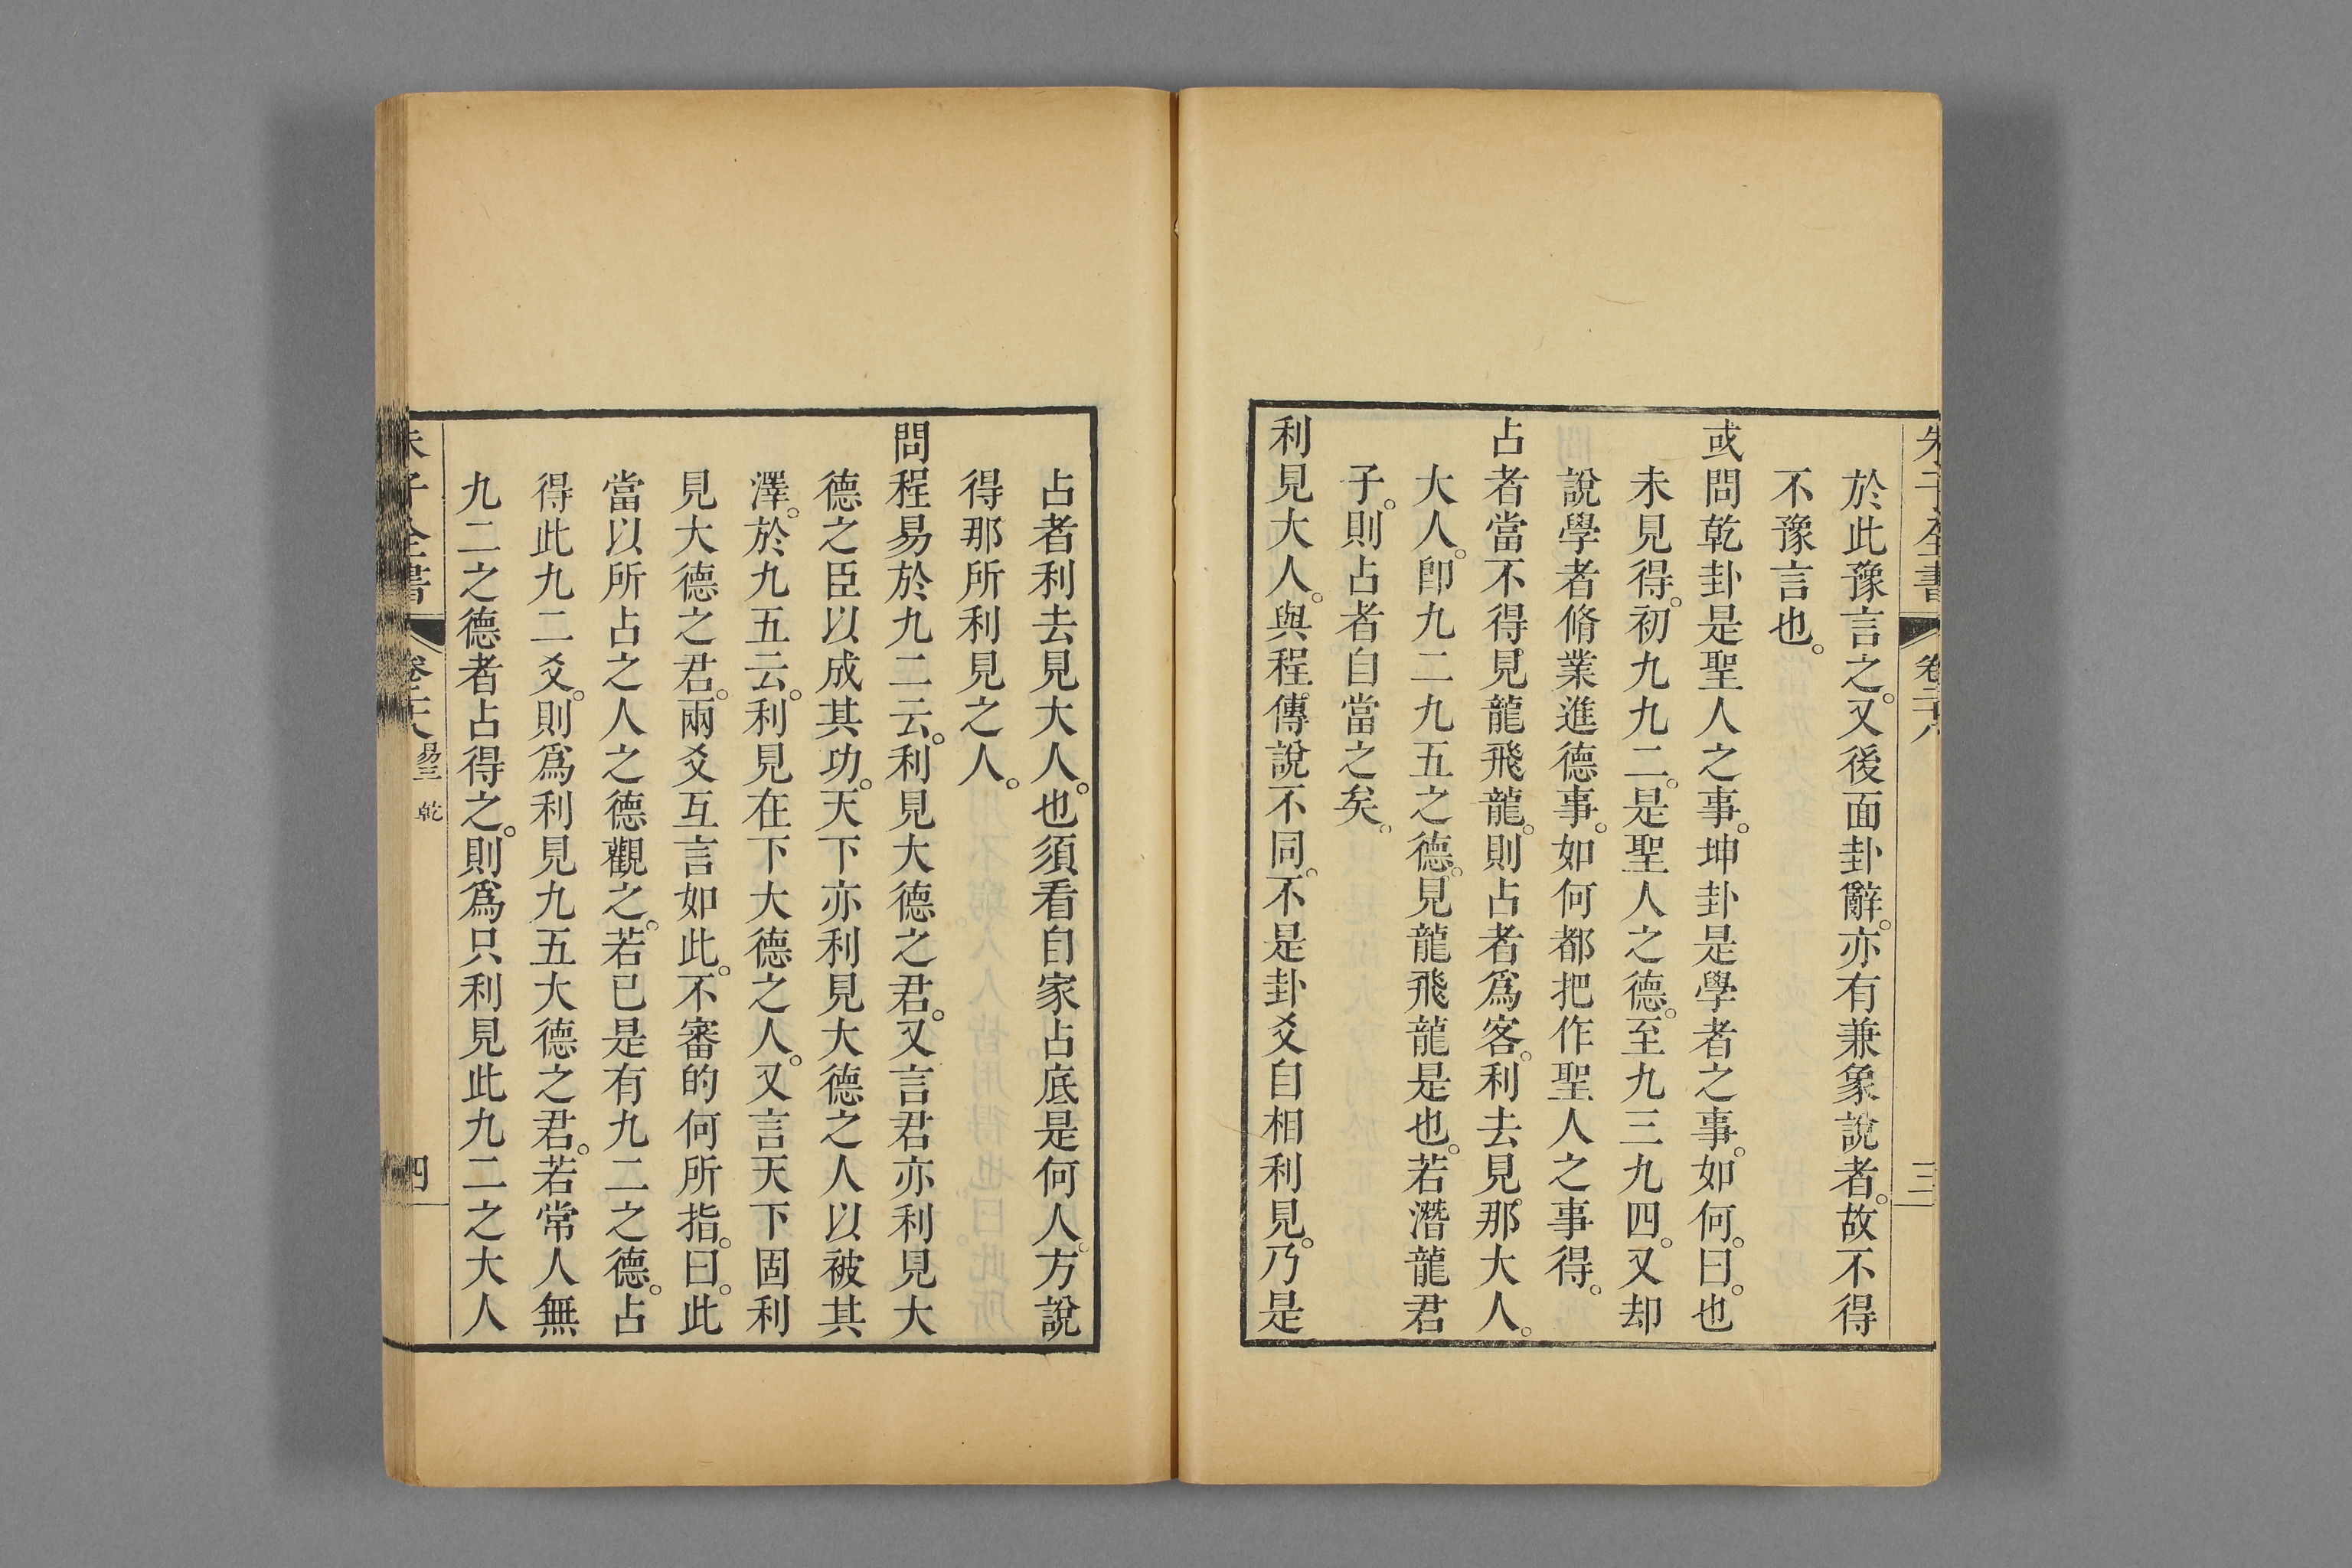 朱子全書 卷二十八 三
於此豫言之。又後面卦辭。亦有兼象說者。故不得
不豫言也。
或問乾卦是聖人之事。坤卦是學者之事。如何。曰。也
未見得。初九九二。是聖人之德。至九三九四。又却
說學者脩業進德事。如何都把作聖人之事得。
占者當不得見龍飛龍。則占者為客。利去見那大人。
大人。卽九二九五之德。見龍飛龍是也。若潛龍君
子。則占者自當之矣。
利見大人。與程傳說不同。不是卦爻自相利見。乃是
占者利去見大人。也須看自家占底是何人。方說
得那所利見之人。
問程易於九二云。利見大德之君。又言君亦利見大
德之臣以成其功。天下亦利見大德之人以被其
澤。於九五云。利見在下大德之人。又言天下固利
見大德之君。兩爻互言如此。不審的何所指。曰。此
當以所占之人之德觀之。若已是有九二之德。占
得此九二爻。則為利見九五大德之君。若常人無
九二之德者占得之。則為只利見此九二之大人
朱子全書 卷二十八 易三 乾 四